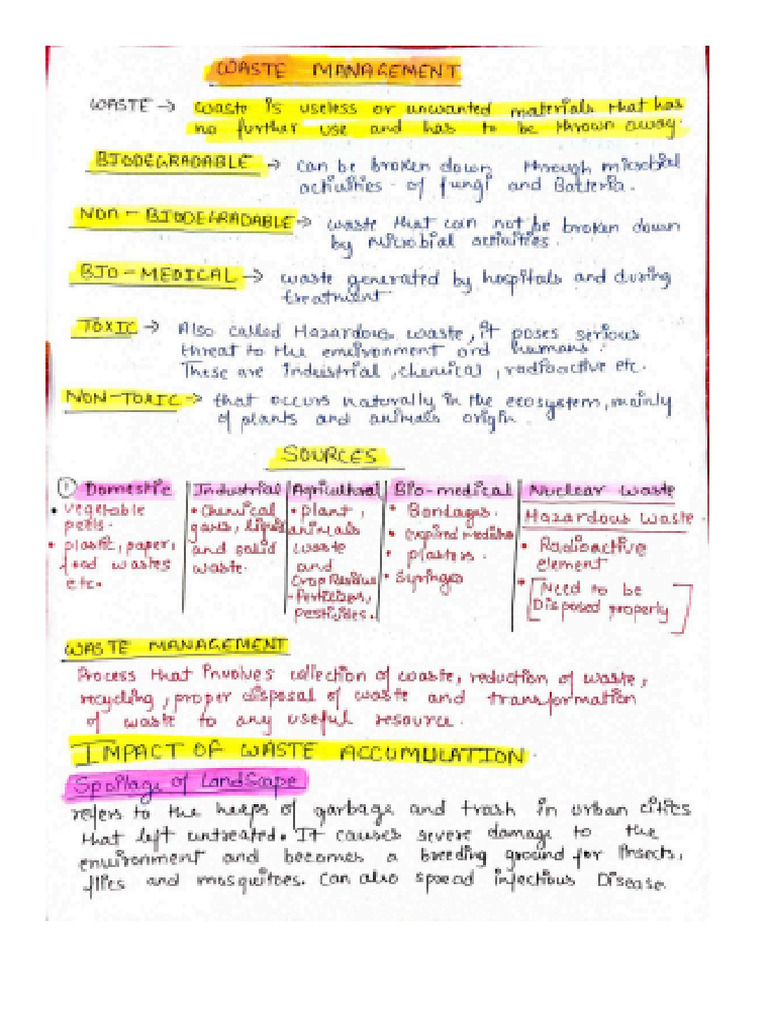 WASTE MANAGEMENT
WASTE → waste is useless or unwanted materials that has
no further use and has to be thrown away.
BIODEGRADABLE → can be broken down through microbial
activities of fungi and Batteria.
NON-BIODEGRADABLE → waste that can not be broken down
by microbial activities.
BIO-MEDICAL → waste generated by hospitals and during
treatment
TOXIC → Also called Hazardous waste, it poses serious
threat to the environment and humans.
These are industrial, chemical, radioactive etc.
NON-TOXIC → that occurs naturally in the ecosystem, mainly
of plants and animals origin.
SOURCES
① Domestic
• vegetable
peels.
• plastic, paper,
food wastes
etc.
Industrial
• Chemical
gases, liquid
and solid
waste.
Agricultural
• plant,
animals
waste
and
Crop Residue
- fertilizers,
pesticides.
Bio-medical
• Bandages.
• expired medicine
• plasters.
• Syringes
Nuclear waste
Hazardous Waste.
• Radioactive
element
• [Need to be
Disposed properly]
WASTE MANAGEMENT
Process that involves collection of waste, reduction of waste,
recycling, proper disposal of waste and transformation
of waste to any useful resource.
IMPACT OF WASTE ACCUMULATION.
Spoilage of Landscape
refers to the heaps of garbage and trash in urban cities
that left untreated. It causes severe damage to the
environment and becomes a breeding ground for insects,
flies and mosquitoes. Can also spread infectious Disease.